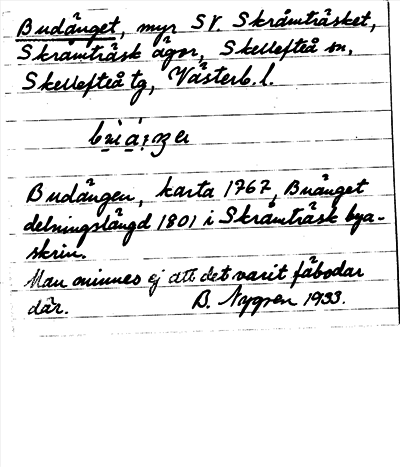 Budänget, myr SV. Skråmträsket,
Skråmträsk ägor, Skellefteå sn,
Skellefteå tg, Västerb. l.
Budängen, karta 1767, Buänget
delningslängd 1801 i Skråmträsk bya-
skrin.
Man minnes ej att det varit fäbodar
där. B. Nygren 1933.